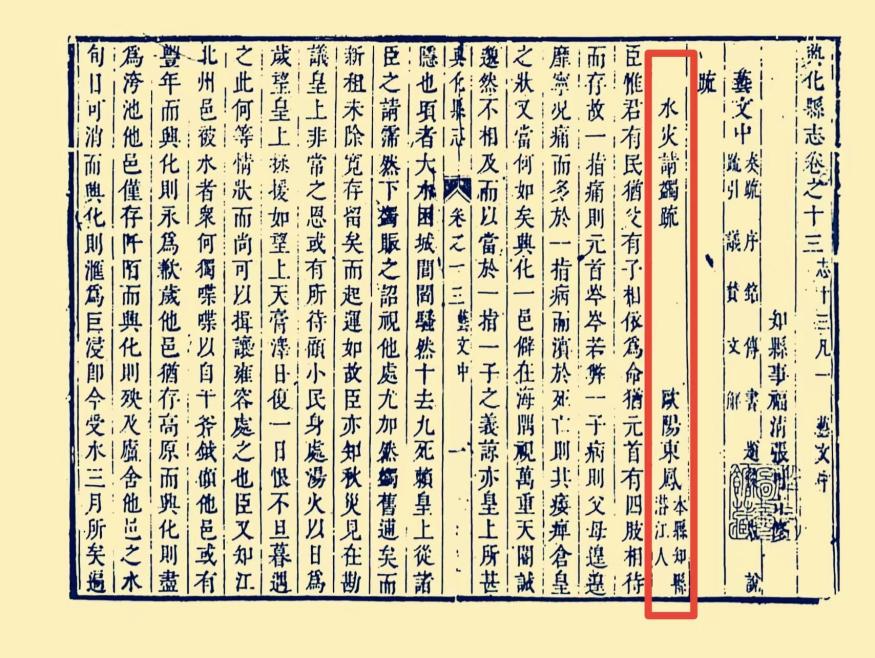 興化縣志卷之十三 志十三凡一 藝文中
知縣事福清張可立修
藝文中 奏疏 序 銘 傳 書
疏引 議 贊 文 解 說
疏
水火請蠲疏 歐陽東鳳 本縣知縣
潛江人
臣惟君有民猶父有子相依爲命猶元首有四肢相待
而存故一指痛則元首岑岑若弊一子病則父母遑遑
靡寧况痛而多於一指病而瀕於死亡則其痿痺倉皇
之狀又當何如矣興化一邑僻在海隅視萬里天閽誠
邈然不相及而以當於一指一子之義諒亦皇上所甚
興化縣志 卷之十三 藝文中 一
隱也項者大水困城閭閻騷然十去九死賴皇上從諸
臣之請霈然下蠲賑之詔視他處尤加然蠲舊逋矣而
新租未除寬存留矣而起運如故臣亦知秋災見在勘
議皇上非常之恩或有所待顧小民身處湯火以日爲
歲望皇上拯援如望上天膏澤日復一日恨不旦暮遇
之此何等情狀而尚可以揖讓雍容處之也臣又知江
北州邑被水者衆何獨喋喋以自干斧鉞顧他邑或有
豐年而興化則永爲歉歲他邑猶存高原而興化則盡
爲洿池他邑僅存阡陌而興化則殃及廬舍他邑之水
旬日可消而興化則滙爲巨浸卽今受水三月所矣遍